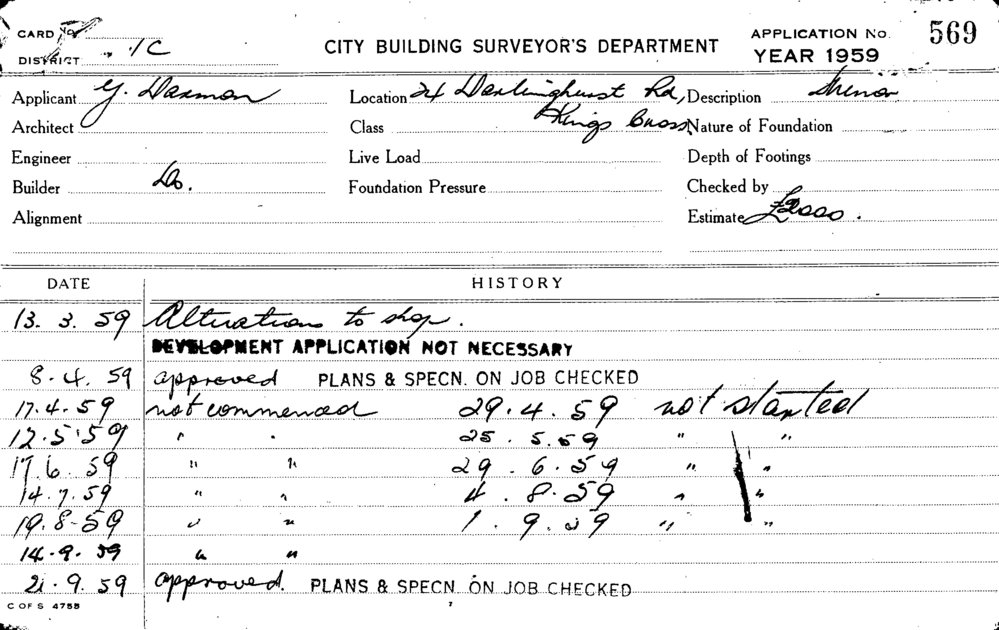 CARD No.
CITY BUILDING SURVEYOR'S DEPARTMENT
APPLICATION No. 569
DISTRICT 1C
YEAR 1959
Applicant Y. Daxmon Location 24 Darlinghurst Rd, Description Minor
Kings Cross
Architect Class Nature of Foundation
Engineer Live Load Depth of Footings
Builder Do. Foundation Pressure Checked by
Alignment Estimate
DATE HISTORY
13. 3. 59 Alterations to shop.
DEVELOPMENT APPLICATION NOT NECESSARY
8. 4. 59 approved PLANS & SPECN. ON JOB CHECKED
17. 4. 59 not commenced 29. 4. 59 not started
12. 5. 59 " " 25. 5. 59 " "
17. 6. 59 " " 29. 6. 59 " "
14. 7. 59 " " 4. 8. 59 " "
19. 8. 59 " " 1. 9. 59 " "
14. 9. 59 " "
21. 9. 59 approved. PLANS & SPECN. ON JOB CHECKED
C OF S 4755